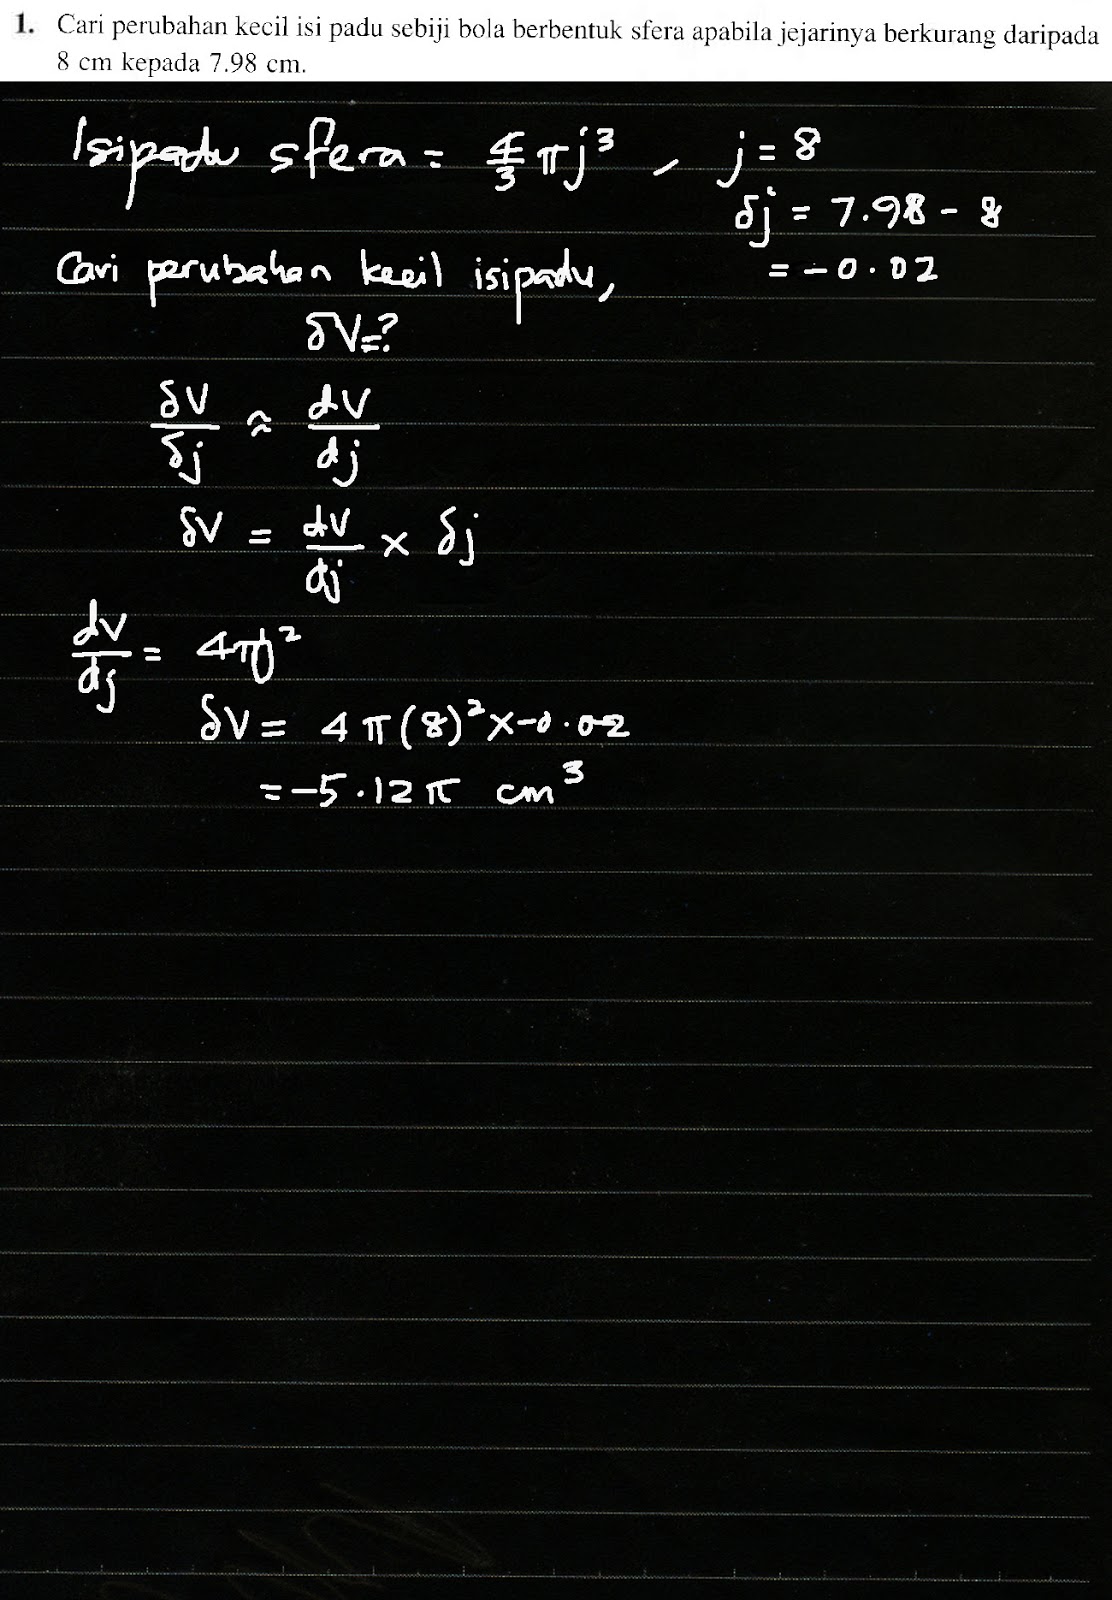 1. Cari perubahan kecil isi padu sebiji bola berbentuk sfera apabila jejarinya berkurang daripada
8 cm kepada 7.98 cm.
Isipadu sfera = 4/3 πj³, j = 8
δj = 7.98 - 8
= -0.02
Cari perubahan kecil isipadu,
δV=?
δV/δj ≈ dV/dj
δV = dV/dj × δj
dV/dj = 4πj²
δV = 4π(8)²×-0.02
= -5.12π cm³